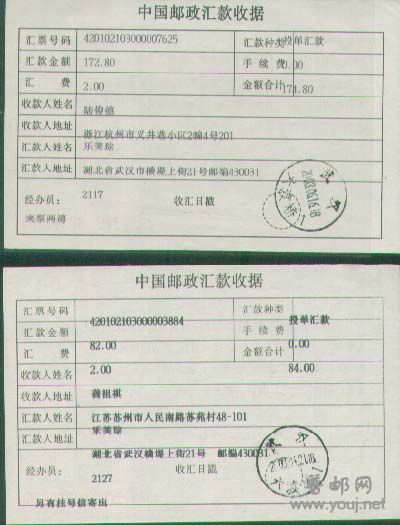 中国邮政汇款收据
汇票号码 420102103000007625 汇款种类 投单汇款
汇款金额 172.80 手续费 0.00
汇费 2.00 金额合计 174.80
收款人姓名 陆俊德
收款人地址 浙江杭州市义井巷小区2幢4号201
汇款人姓名 乐美琮
汇款人地址 湖北省武汉市横堤上街21号邮编430031
经办员: 2117 收汇日戳
来票两清
中国邮政汇款收据
汇票号码 420102103000003884 汇款种类 投单汇款
汇款金额 82.00 手续费
汇费 2.00 金额合计 84.00
收款人姓名 龚祖祺
收款人地址 江苏苏州市人民南路苏苑村48-101
汇款人姓名 乐美琮
汇款人地址 湖北省武汉横堤上街21号 邮编430031
经办员: 2127 收汇日戳
另有挂号信寄出
www.youj.net